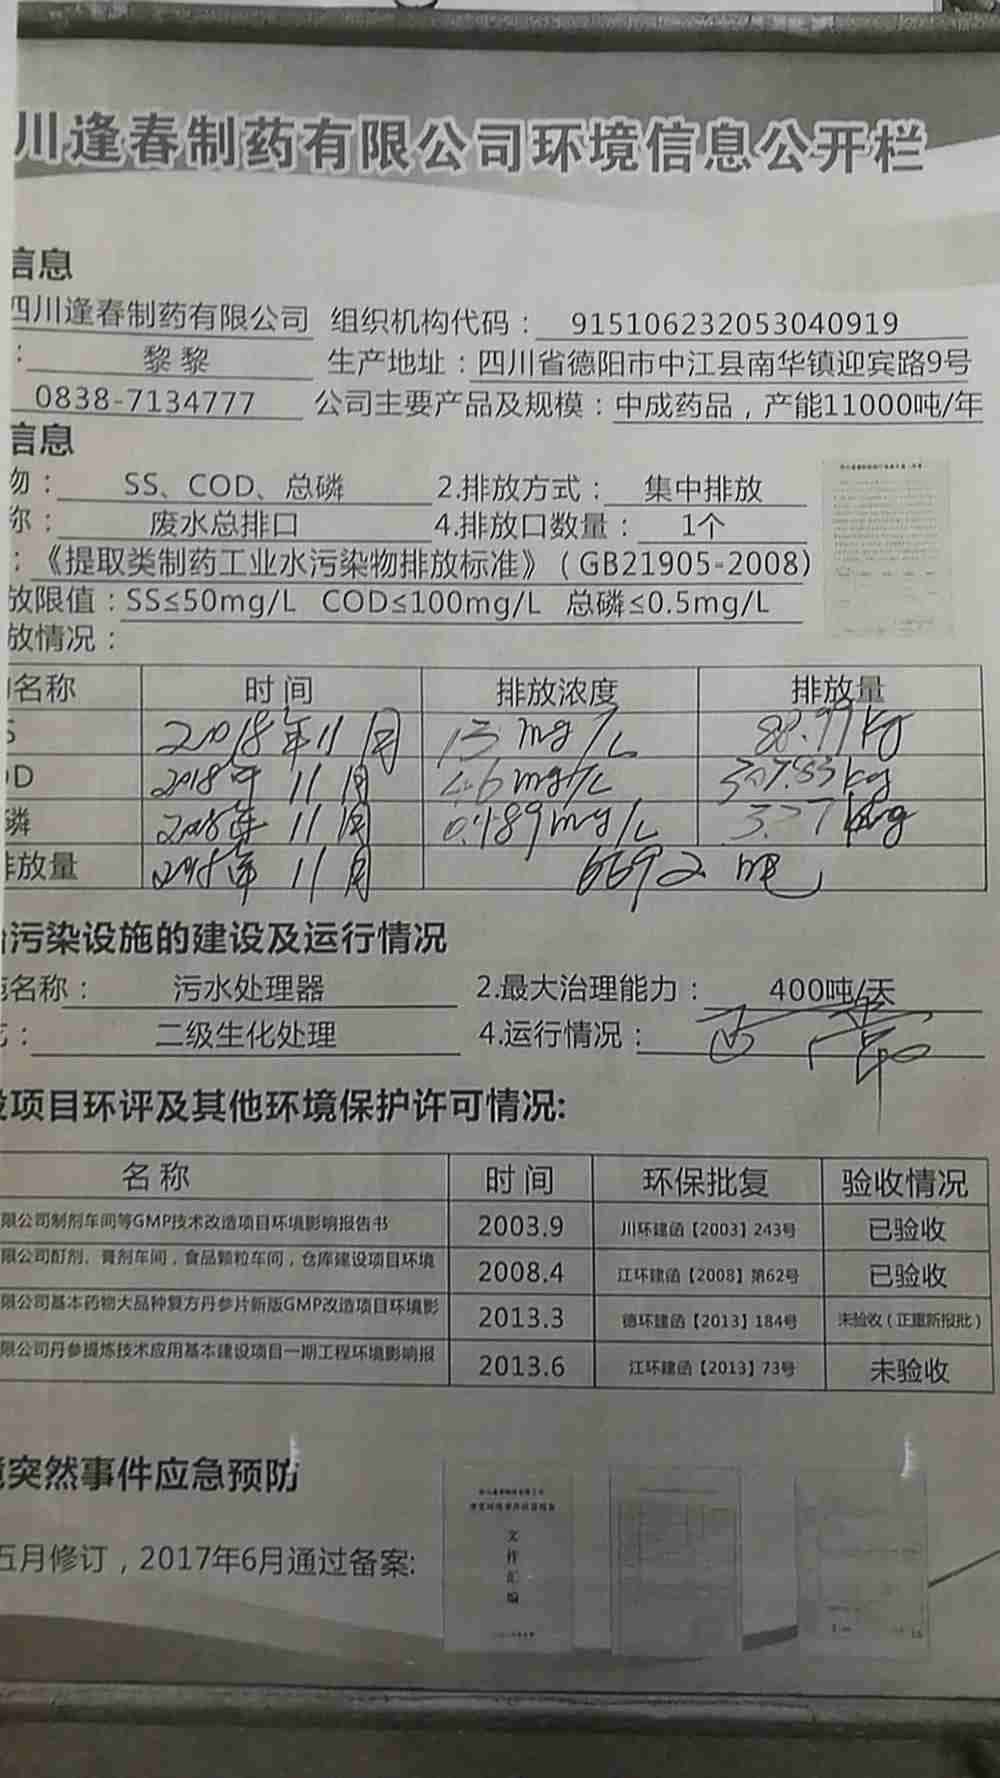 川逢春制药有限公司环境信息公开栏
信息
四川逢春制药有限公司 组织机构代码：915106232053040919
：黎黎 生产地址：四川省德阳市中江县南华镇迎宾路9号
0838-7134777 公司主要产品及规模：中成药品，产能11000吨/年
信息
物：SS、COD、总磷 2.排放方式：集中排放
称：废水总排口 4.排放口数量：1个
：《提取类制药工业水污染物排放标准》（GB21905-2008）
放限值：SS≤50mg/L COD≤100mg/L 总磷≤0.5mg/L
放情况：
名称 时间 排放浓度 排放量
S 2018年11月 13mg/L 88.99kg
OD 2018年11月 46mg/L 307.83kg
磷 2018年11月 0.489mg/L 3.27kg
排放量 2018年11月 6692吨
污染设施的建设及运行情况
施名称：污水处理器 2.最大治理能力：400吨/天
艺：二级生化处理 4.运行情况：正常
设项目环评及其他环境保护许可情况:
名称 时间 环保批复 验收情况
限公司制剂车间等GMP技术改造项目环境影响报告书 2003.9 川环建函【2003】243号 已验收
限公司酊剂、膏剂车间，食品颗粒车间，仓库建设项目环境 2008.4 江环建函【2008】第62号 已验收
限公司基本药物大品种复方丹参片新版GMP改造项目环境影 2013.3 德环建函【2013】184号 未验收（正重新报批）
限公司丹参提炼技术应用基本建设项目一期工程环境影响报 2013.6 江环建函【2013】73号 未验收
境突然事件应急预防
五月修订，2017年6月通过备案:
文件汇编